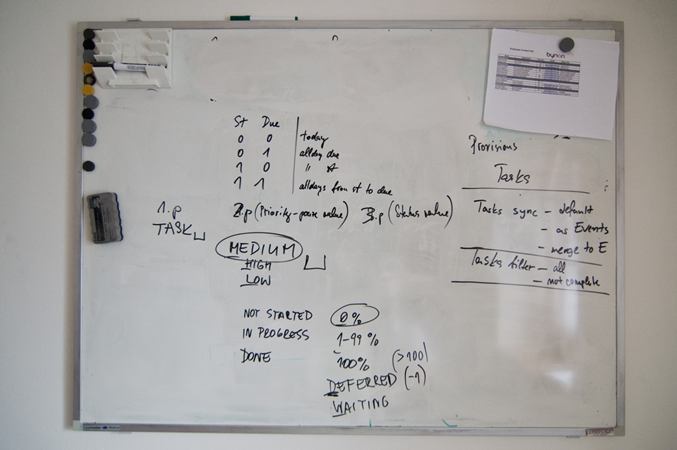 bynon
St Due
0 0 today
0 1 allday due
1 0 " st
1 1 alldays from st to due
1.p 2.p (Priority-parse value) 3.p (Status value)
TASK
MEDIUM
HIGH
LOW
NOT STARTED 0%
IN PROGRESS 1-99%
DONE 100% (>100)
DEFERRED (-1)
WAITING
Provisions
Tasks
Tasks sync - default
- as Events
- merge to E
Tasks filter - all
- not complete